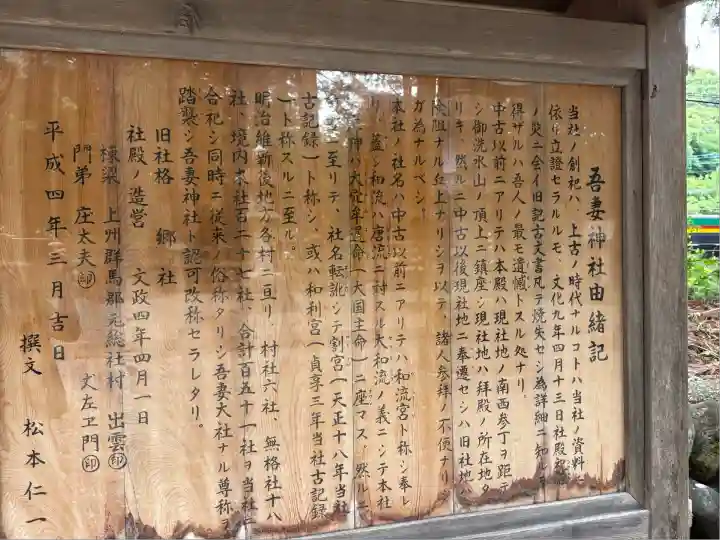 吾妻神社由緒記
当社ノ創祀ハ 上古ノ時代ナルコトハ当社ノ資料ニ
依リ立證セラルルモ、文化九年四月十三日社殿
ノ災ニ会イ旧記古文書凡テ焼失セシ為詳細ニ知ルヲ
得ザルハ吾人ノ最モ遺憾トスル処ナリ。
中古以前ニアリテハ本殿ハ現社地ノ南西参丁ヲ距テ
シ御洗水山ノ頂上ニ鎮座シ現社地ハ拝殿ノ所在地タ
リキ 然ルニ中古以後現社地ニ奉遷セシハ旧社地ハ
険阻ナル丘上ナリシヲ以テ、諸人参拝ノ不便ナリシ
ガ為ナルベシ。
本社ノ社名ハ中古以前ニアリテハ和流宮ト称シ奉レ
リ、蓋シ和流ハ唐流ニ対スル大和流ノ義ニシテ本社
神ハ大穴牟遅命(大国主命)ニ座マス、然ルニ
ニ至リテ、社名転訛シテ割宮(天正十八年当社
古記録)ト称シ、或ハ和利宮(貞享三年当社古記録
)ト称スルニ至ル。
明治維新後地方各村ニ亘リ、村社六社、無格社十八
社、境内末社百二十七社、合計百五十一社ヲ当社ニ
合祀シ同時ニ従来ノ俗称タリシ吾妻大社ナル尊称ヲ
踏襲シ吾妻神社ト認可改称セラレタリ。
旧社格 郷社
社殿ノ造営 文政四年四月一日
棟梁 上州群馬郡元総社村 出雲㊞
丈左ヱ門㊞
門弟 庄太夫㊞
平成四年三月吉日
撰文 松本仁一